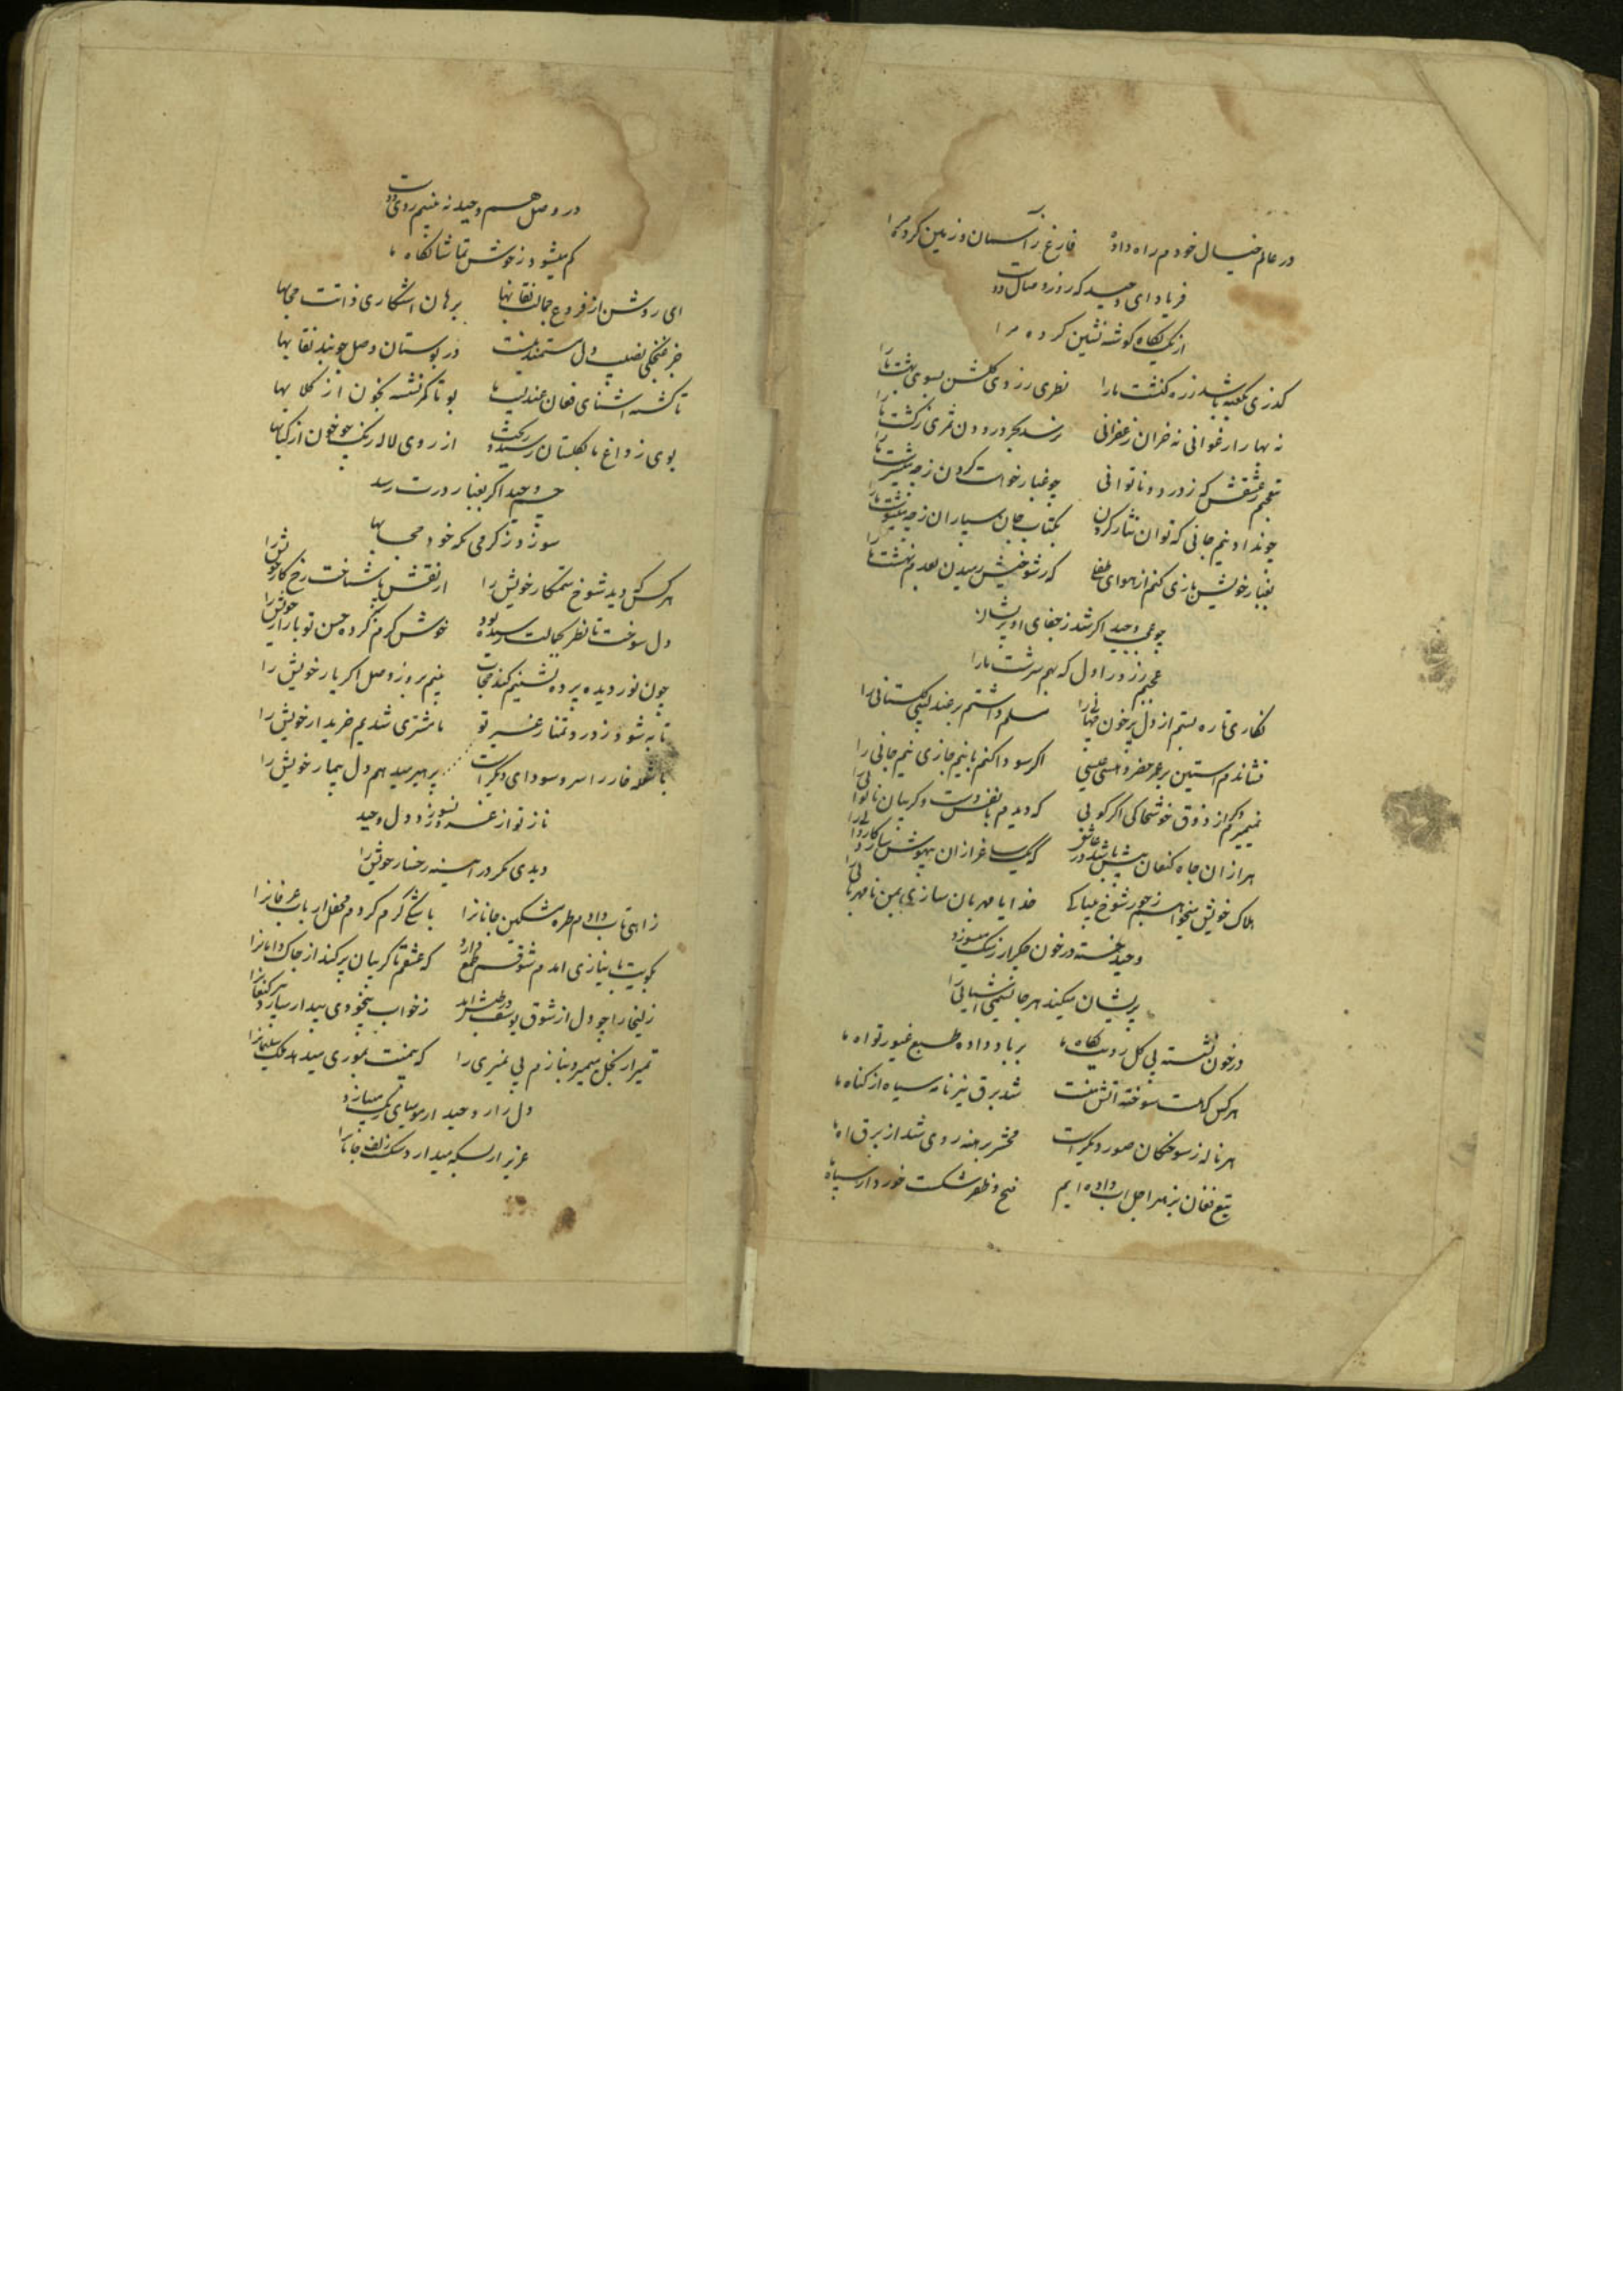 در عالم خیال خودم راه داده فارغ ز آسمان و زمین کرده مرا
فریاد ای وحید که روز وصال دوست
از یک نکاه کوشه نشین کرده مرا
کذری بکعبه باشد ز ره کنشت ما را نظری ز روی کلشن بسوی بهشت ما را
نه بهار ارغوانی نه خزان زعفرانی نرسد بجز درودن ثمری ز کشت ما را
ز عشقش که ز درد و ناتوانی چو غبار خواست کردن ز چه میسرشت ما را
چو نداد نیم جانی که توان نثار کردن بکتاب جان سپاران ز چه مینوشت ما را
بغبار خویش بازی کنم از هوای
چو وحید اکر شد ز جفای او پریشان
ز روز اول که بهم سرشت ما را
نکاری تا ره بستم از دل پر خون را مسلم داشتم بر عندلیبی کلستانی را
فشاندم آستین بر عمر خضر و هستی عیسی اکر سودا کنم با نیم جازی نیم جانی را
نمیمیرم از ذوق خوشحالی اکر کویی که دیدم با نفس دست و کریبان ناتوانی را
هزاران جاه کنعان پیش باشد در
هلاک خویش میخواهم ز جور شوخ بیباکی خدایا مهربان سازی بمن نامهربانی را
وحید خسته در خون جکر از رشک میسوزد
پریشان میکند هر جا نسیمی آشیانی را
در خون نشسته بی کل رویت نکاه ما بر باد داده طبع غیور تو آه ما
هر کس که هست سوخته آتش منست شد برق نیز نامه سیاه از کناه ما
هر ناله ز سوختکان صور دیکر است محشر برهنه روی شد از برق آه ما
تیغ فغان بزهر اجل آب داده ایم فتح و ظفر شکست خورد از سپاه ما
در وصل هم وحید نه بینیم روی دوست
کم میشود ز خوش تماشا نکاه ما
ای روشن از فروغ جمالت نقابها برهان آشکاری ذاتت حجابها
جز نصیب دل مستمند نیست در بوستان وصل چو نقابها
تا کشته آشنای فغان عندلیب ما بو تا کمر نشسته بخون از کلابها
بوی ز داغ ما بکلستان رسید و ریخت از روی لاله رنک چو خون از کبابها
چشم وحید اکر بغبار درت رسد
سوزد ز کرمی نکه خود حجابها
هر کس که دید شوخ ستمکار خویش را از نقش پا شناخت رخ کار خویش را
دل سوخت تا نظر بجمالت رسیده بود خوش کرم کرده حسن تو بازار خویش را
چون نور دیده پرده نشینم کند حجاب بینم بروز وصل اکر یار خویش را
تا به شود ز درد تمنا ز غیر تو ما مشتری شدیم خریدار خویش را
با شعله خار را سر و سودای دیکر است پرهیز میدهم دل بیمار خویش را
ناز تو از غرور نسوزد دل وحید
دیدی مکر در آینه رخسار خویش را
ز آهی تاب دادم طره مشکین جانانرا باشکی کرم کردم محفل ارباب عرفانرا
بکویت با نیازی آمدم شوقم طمع دارد که عشقم تا کریبان پر کند از چاک دامانرا
زلیخا را چو دل از شوق یوسف در طپش آمد ز خواب بیخودی بیدار سازد پیر کنعانرا
تمیز از بخل میمیرد بنازم بی تمیزی را که همت بموری میدهد ملک سلیمانرا
دل زار وحید از مومیایی رنک میبازد
عزیز از بسکه میدارد شکست زلف جانانرا